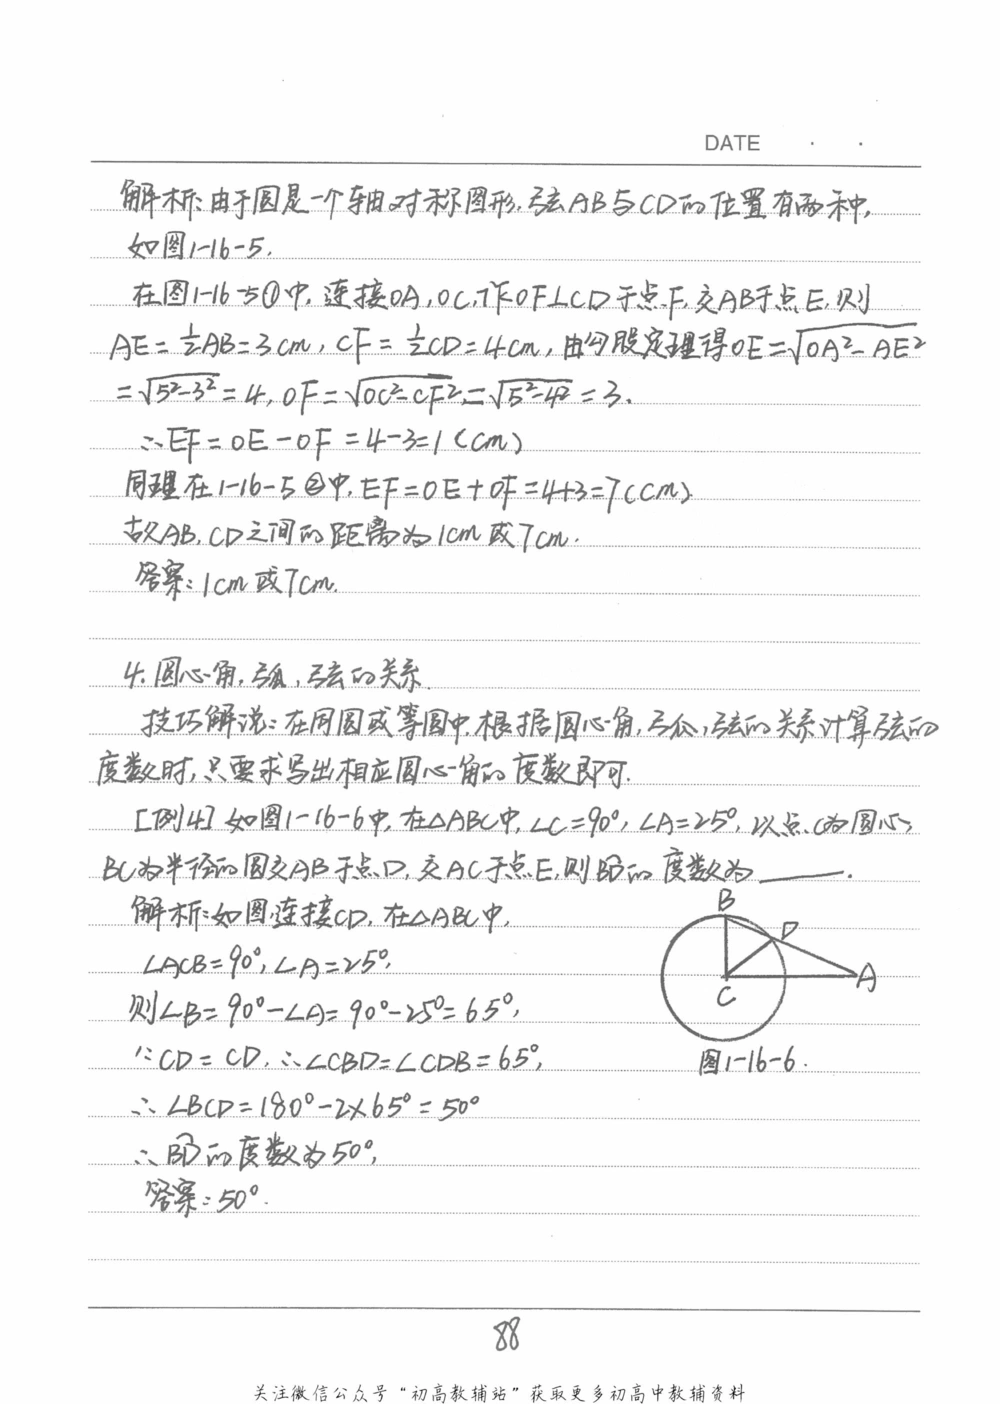 DATE · ·
解析:由于圆是一个轴对称图形,弦AB与CD的位置有两种,
如图1-16-5.
在图1-16-5①中,连接OA,OC,作OF⊥CD于点F,交AB于点E,则
AE=½AB=3cm,CF=½CD=4cm,由勾股定理得OE=√(OA²-AE²)
=√(5²-3²)=4,OF=√(OC²-CF²)=√(5²-4²)=3.
∴EF=OE-OF=4-3=1(cm)
同理在1-16-5②中,EF=OE+OF=4+3=7(cm)
故AB,CD之间的距离为1cm或7cm.
答案:1cm或7cm.
4.圆心角,弧,弦的关系
技巧解说:在同圆或等圆中,根据圆心角,弧,弦的关系计算弦的
度数时,只要求写出相应圆心角的度数即可.
[例4]如图1-16-6中,在△ABC中,∠C=90°,∠A=25°,以点C为圆心,
BC为半径的圆交AB于点D,交AC于点E,则B͡D的度数为____.
解析:如图,连接CD,在△ABC中,
∠ACB=90°,∠A=25°,
则∠B=90°-∠A=90°-25°=65°,
∵CD=CD,∴∠CBD=∠CDB=65°,
∴∠BCD=180°-2×65°=50°
∴B͡D的度数为50°,
答案:50°.
B
D
C
A
图1-16-6.
88
关注微信公众号“初高教辅站”获取更多初高中教辅资料